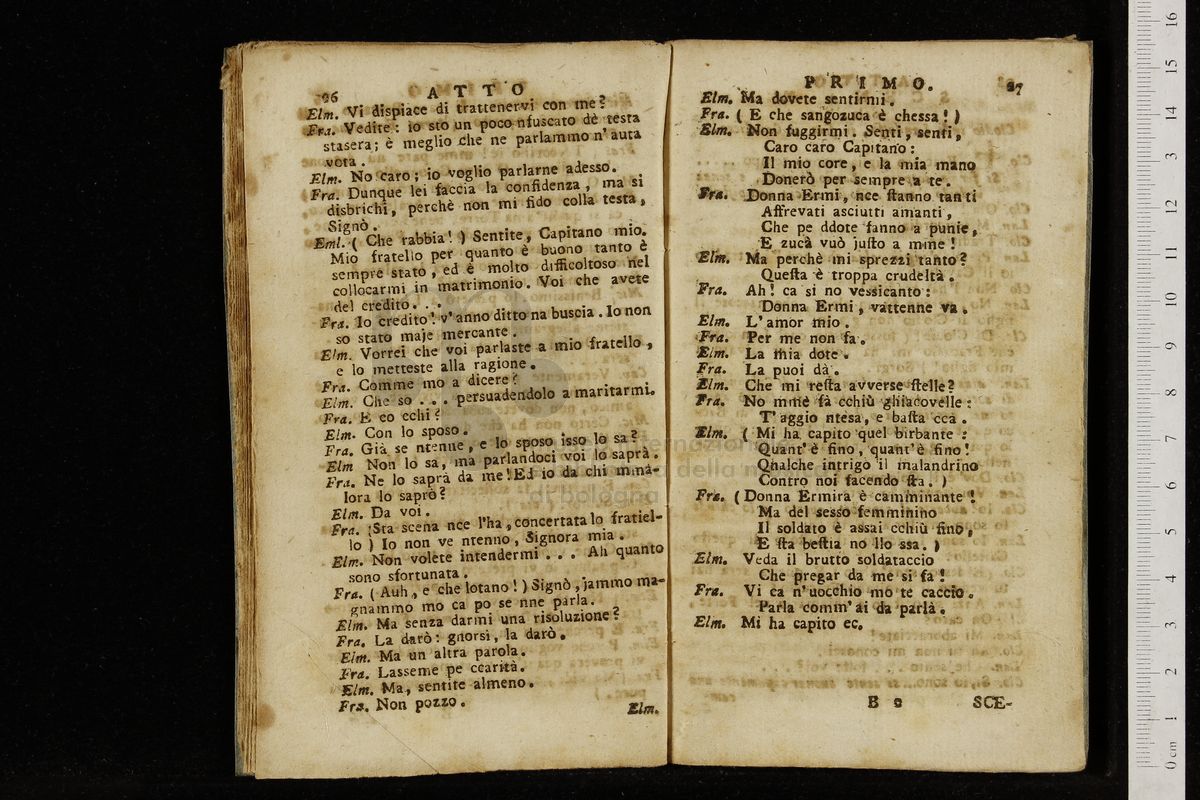 26 ATTO
Elm. Vi dispiace di trattenervi con me?
Fra. Vedite: io sto un poco nfuscato dè testa
stasera; è meglio che ne parlammo n'auta
vota.
Elm. No caro; io voglio parlarne adesso.
Fra. Dunque lei faccia la confidenza, ma si
disbrichi, perchè non mi fido colla testa,
Signò.
Eml. ( Che rabbia! ) Sentite, Capitano mio.
Mio fratello per quanto è buono tanto è
sempre stato, ed è molto difficoltoso nel
collocarmi in matrimonio. Voi che avete
del credito...
Fra. Io credito! v'anno ditto na buscia. Io non
so stato maje mercante.
Elm. Vorrei che voi parlaste a mio fratello,
e lo metteste alla ragione.
Fra. Comme mo a dicere?
Elm. Che so ... persuadendolo a maritarmi.
Fra. E co cchi?
Elm. Con lo sposo.
Fra. Già se ntenne, e lo sposo isso lo sa?
Elm Non lo sa, ma parlandoci voi lo saprà.
Fra. Ne lo saprà da me! Ed io da chi mmà-
lora lo saprò?
Elm. Da voi.
Fra. (Sta scena nce l'ha, concertata lo fratiel-
lo ) Io non ve ntenno, Signora mia.
Elm. Non volete intendermi ... Ah quanto
sono sfortunata.
Fra. ( Auh, e che lotano! ) Signò, jammo ma-
gnammo mo ca po se nne parla.
Elm. Ma senza darmi una risoluzione?
Fra. La darò: gnorsi, la darò.
Elm. Ma un altra parola.
Fra. Lasseme pe ccarità.
Elm. Ma, sentite almeno.
Fra. Non pozzo.
Elm.
PRIMO. 27
Elm. Ma dovete sentirmi.
Fra. ( E che sangozuca è chessa! )
Elm. Non fuggirmi. Senti, senti,
Caro caro Capitano:
Il mio core, e la mia mano
Donerò per sempre a te.
Fra. Donna Ermi, nce stanno tanti
Affrevati asciutti amanti,
Che pe ddote fanno a punie,
E zucà vuò justo a mme!
Elm. Ma perchè mi sprezzi tanto?
Questa è troppa crudeltà.
Fra. Ah! ca si no vessicanto:
Donna Ermi, vattenne va.
Elm. L'amor mio.
Fra. Per me non fa.
Elm. La mia dote.
Fra. La puoi dà.
Elm. Che mi resta avverse stelle?
Fra. No mme fà cchiù ghiacovelle:
T'aggio ntesa, e basta cca.
Elm. ( Mi ha capito quel birbante:
Quant'è fino, quant'è fino!
Qualche intrigo il malandrino
Contro noi facendo sta. )
Fra. ( Donna Ermira è camminante!
Ma del sesso femminino
Il soldato è assai cchiù fino,
E sta bestia no llo ssa. )
Elm. Veda il brutto soldataccio
Che pregar da me si fa!
Fra. Vi ca n'uocchio mo te caccio.
Parla comm'ai da parlà.
Elm. Mi ha capito ec.
B 2 SCE-